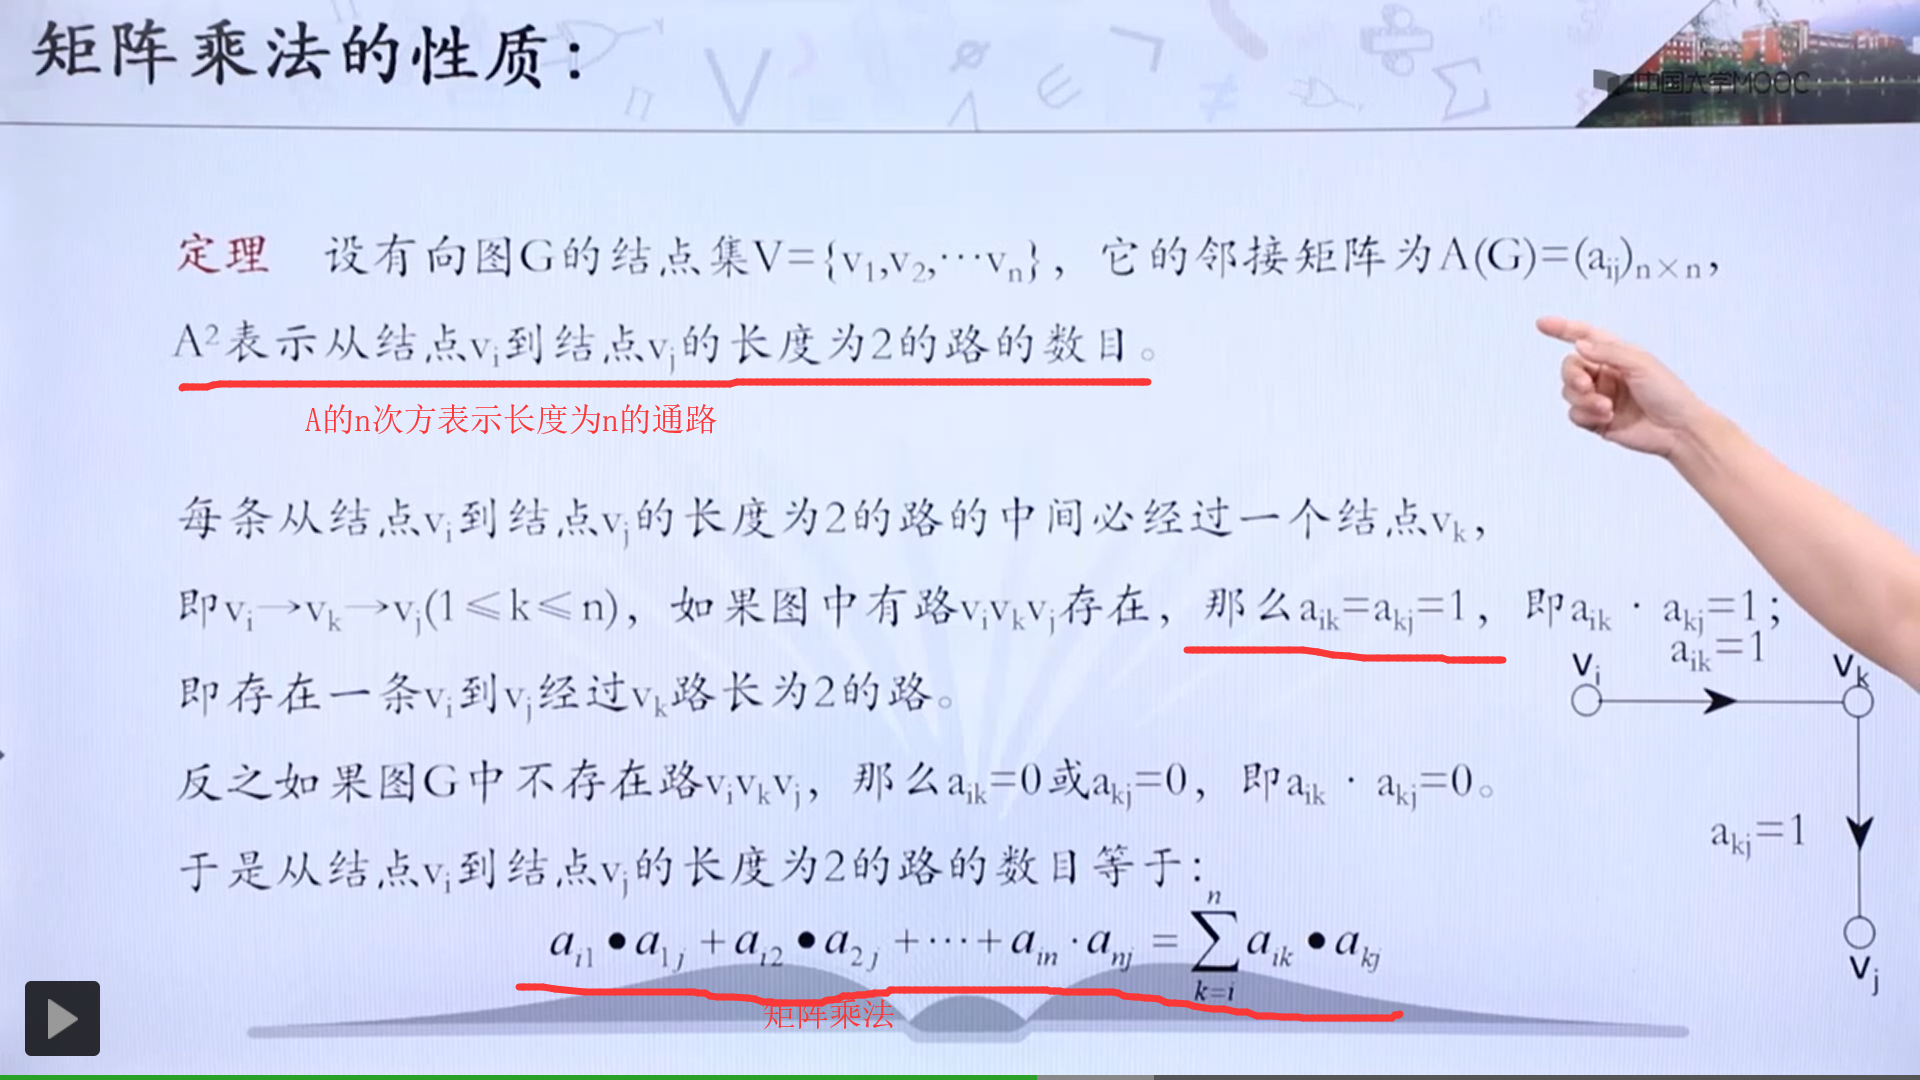 矩阵乘法的性质：
中国大学MOOC
定理 设有向图G的结点集V={v₁,v₂,…vₙ}，它的邻接矩阵为A(G)=(aᵢⱼ)ₙ×ₙ，
A²表示从结点vᵢ到结点vⱼ的长度为2的路的数目。
A的n次方表示长度为n的通路
每条从结点vᵢ到结点vⱼ的长度为2的路的中间必经过一个结点vₖ，
即vᵢ→vₖ→vⱼ(1≤k≤n)，如果图中有路vᵢvₖvⱼ存在，那么aᵢₖ=aₖⱼ=1，即aᵢₖ · aₖⱼ=1；
即存在一条vᵢ到vⱼ经过vₖ路长为2的路。
反之如果图G中不存在路vᵢvₖvⱼ，那么aᵢₖ=0或aₖⱼ=0，即aᵢₖ · aₖⱼ=0。
于是从结点vᵢ到结点vⱼ的长度为2的路的数目等于：
aᵢ₁●a₁ⱼ+aᵢ₂●a₂ⱼ+⋯+aᵢₙ·aₙⱼ=∑ⁿₖ₌ᵢaᵢₖ●aₖⱼ
矩阵乘法
vᵢ
aᵢₖ=1
vₖ
aₖⱼ=1
vⱼ